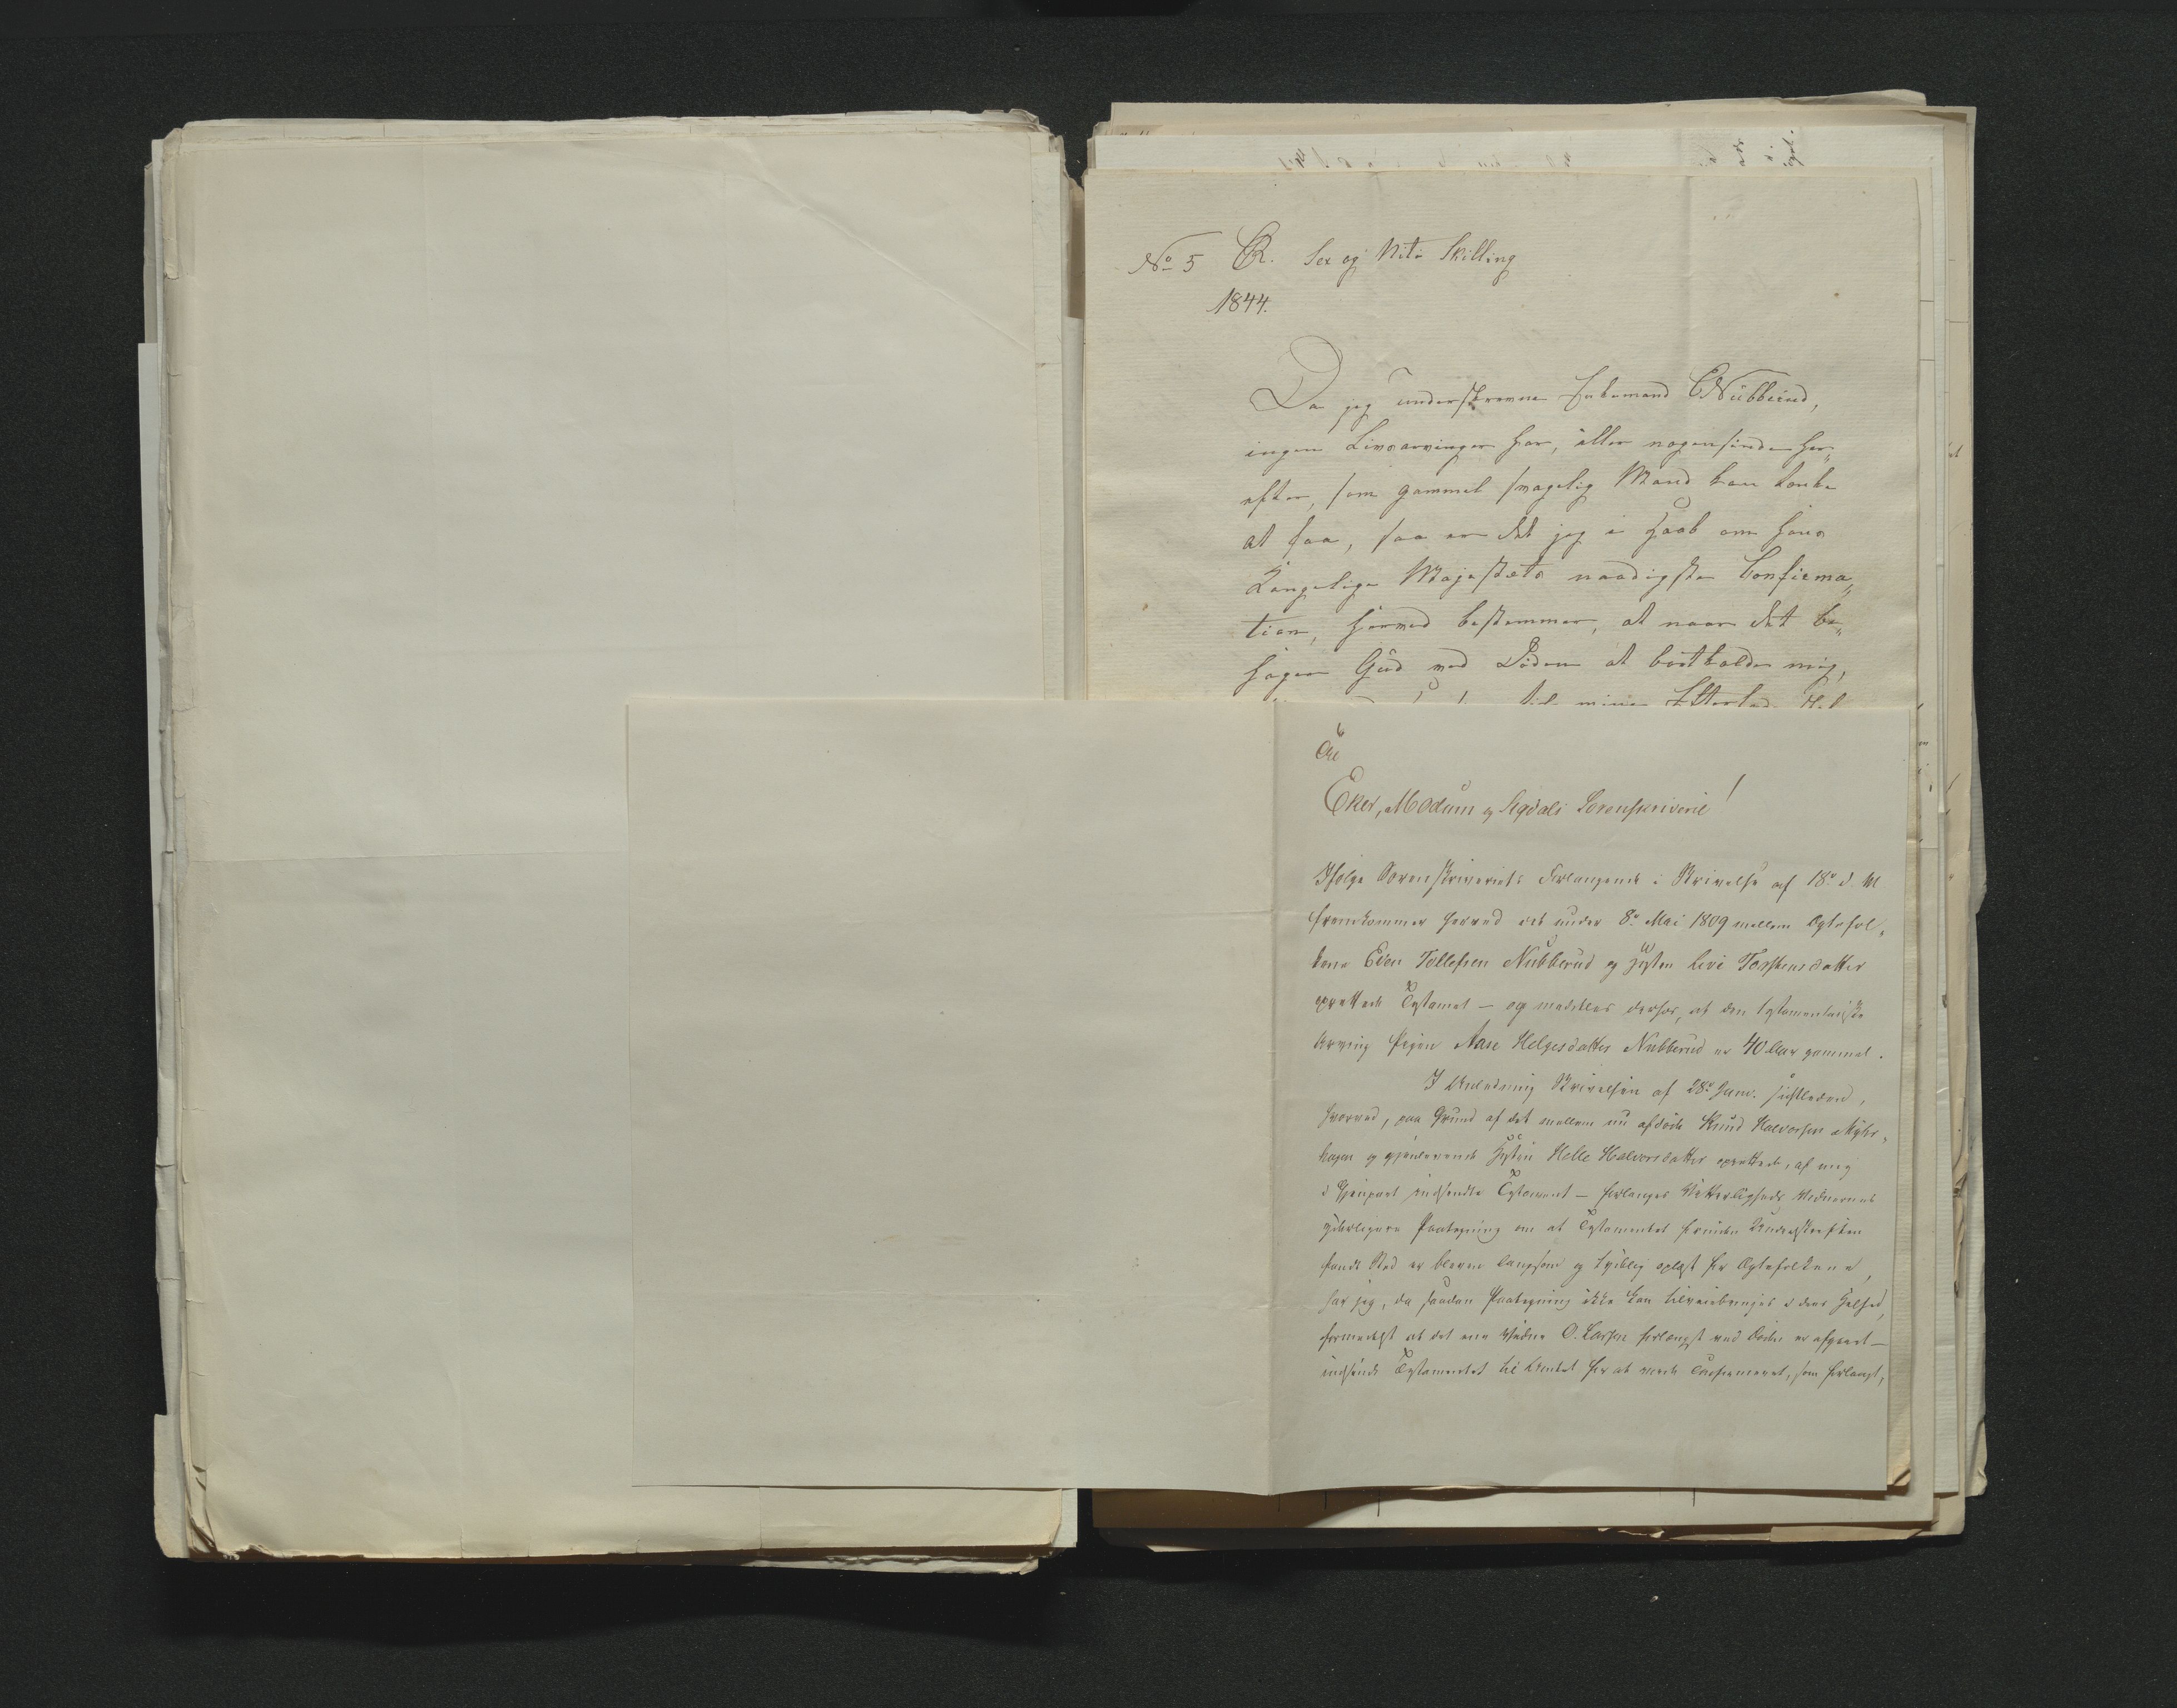 No 5 CR. Sex og Niti Skilling
1844.
Da jeg underskrevne Enkemand E Nubberud,
ingen Livsarvinger har, eller nogensinde her„
efter, som gammel svagelig Mand kan tænke
at faa, saa er det jeg i Haab om Hans
Kongelige Majestæts naadigste Confirma„
tion, herved bestemmer, at naar det be„
hager Gud ved Døden at bortkalde mig,
til mine
Til
Eker, Modum og Sigdals Sorenskriverie!
Ifølge Sorenskriveriets Forlangende i Skrivelse af 18de d. M
fremkommer herved det under 8de Mai 1809 mellem Ægtefol„
kene Even Tollefsen Nubberud og Hustru Live Torstensdatter
oprettede Testament – og meddeles derhos, at den testamentariske
Arving Pigen Aase Helgesdatter Nubberud er 40 Aar gammel.
I Anledning Skrivelsen af 28de Janv. sidstleden,
hvorved, paa Grund af det mellem nu afdøde Knud Halvorsen Myhr„
hagen og gjenlevende Hustru Helle Halvorsdatter oprettede, af mig
i Gjenpart indsendte Testament – forlanges Vitterligheds Vidnernes
yderligere Paategning om at Testamentet forinden Underskriften
fandt Sted er bleven langsom og tydelig oplæst for Ægtefolkene,
har jeg, da saadan Paategning ikke kan tilveiebringes i dens Helhed,
formedelst at det ene Vidne O. Larsen forlængst ved Døden er afgaaet –
indsendt Testamentet til Amtet for at vorde Confirmeret, som forlangt,